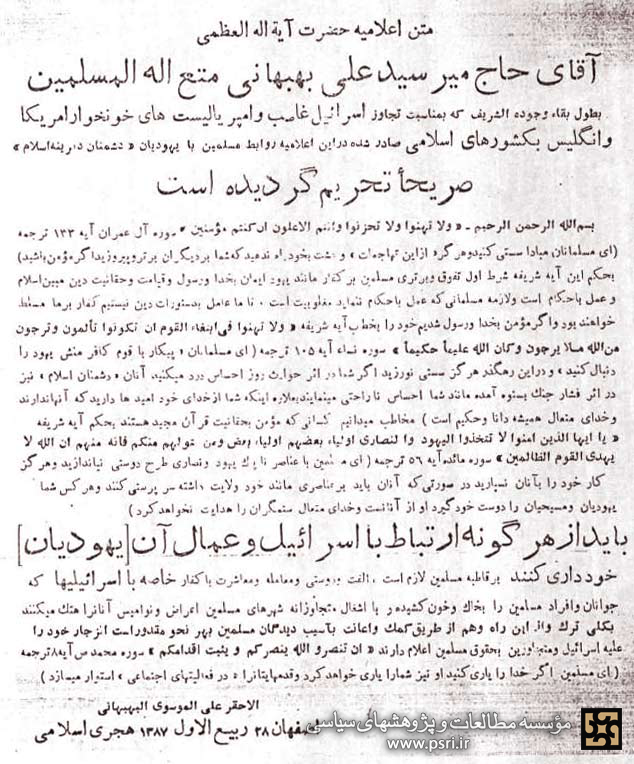 متن اعلامیه حضرت آیة اله العظمی
آقای حاج میر سید علی بهبهانی متع اله المسلمین
بطول بقاء وجوده الشریف که بمناسبت تجاوز اسرائیل غاصب و امپریالیست های خونخوار امریکا
و انگلیس بکشورهای اسلامی صادر شده در این اعلامیه روابط مسلمین با یهودیان « دشمنان دیرینه اسلام »
صریحاً تحریم گردیده است
بسم الله الرحمن الرحیم ـ « ولا تهنوا ولا تحزنوا وانتم الاعلون ان کنتم مؤمنین » سوره آل عمران آیه ۱۳۳ ترجمه
(ای مسلمانان مبادا سستی کنید و هرگز از این تهاجمات » وحشت بخود راه ندهید که شما بر دیگران برتر و پیروزید اگر مؤمن باشید)
بحکم این آیه شریفه شرط اول تفوق و برتری مسلمین بر کفار مانند یهود ایمان بخدا و رسول و قیامت و حقانیت دین مبین اسلام
و عمل باحکام است ولازمه مسلمانی که عمل باحکام ننماید مغلوبیت است ۰ تا ما عامل بدستورات دین نیستیم کفار برما مسلط
خواهند بود و اگر مؤمن بخدا و رسول شدیم خود را بخطاب آیه شریفه « ولا تهنوا فی ابتغاء القوم ان تکونوا تألمون و ترجون
من الله مالا یرجون و کان الله علیماً حکیماً » سوره نساء آیه ۱۰۵ ترجمه ( ای مسلمانان « پیکار با قوم کافر منش یهود را
دنبال کنید » و در این رهگذر هرگز سستی نورزید اگر شما در اثر حوادث روز احساس درد میکنید، آنان « دشمنان اسلام » نیز
در اثر فشار جنک بستوه آمده مانند شما احساس ناراحتی مینمایند بعلاوه اینکه شما از خدای خود امید ها دارید که آنها ندارند
وخدای متعال همیشه دانا و حکیم است ) مخاطب میدانیم کسانی که مؤمن بحقانیت قرآن مجید هستند بحکم آیه شریفه
« یا ایها الذین امنوا لا تتخذوا الیهود وا لنصاری اولیاء بعضهم اولیاء بعض ومن یتولهم منکم فانه منهم ان الله لا
یهدی القوم الظالمین » سوره مائده آیه ۵۶ ترجمه ( ای مسلمین با عناصر ناپاک یهود ونصاری طرح دوستی نیاندازید وهرگز
کار خود را بآنان نسپارید در صورتی که آنان باید بر عناصری مانند خود ولایت داشته سرپرستی کنند وهر کس شما
یهودیان ومسیحیان را دوست خود گیرد او از آنانست وخدای متعال ستمگران را هدایت نخواهد کرد)
باید از هر گونه ارتباط با اسرائیل و عمال آن [یهودیان]
خودداری کنند بر قاطبه مسلمین لازم است الفت ودوستی ومعامله ومعاشرت با کفار خاصه با اسرائیلیها که
جوانان وافراد مسلمین را بخاك وخون کشیده و با اشغال متجاوزانه شهرهای مسلمین اعراض و نوامیس آنانرا هتك میکنند
بکلی ترك واز این راه وهم از طریق کمك واعانت بآسیب دیدگان مسلمین بهر نحو مقدور است انزجار خود را
علیه اسرائیل ومتجاوزین بحقوق مسلمین اعلام دارند « ان تنصرو الله ینصرکم و یثبت اقدامکم » سوره محمد ص آیه ۸ ترجمه
( ای مسلمین اگر خدا را یاری کنید او نیز شما را یاری خواهد کرد وقدمهایتانرا « در فعالیتهای اجتماعی » استوار میسازد )
الاحقر علی الموسوی البهبهانی
اصفهان ۲۸ ربیع الاول ۱۳۸۷ هجری اسلامی
مؤسسه مطالعات و پژوهشهای سیاسی
www.psri.ir